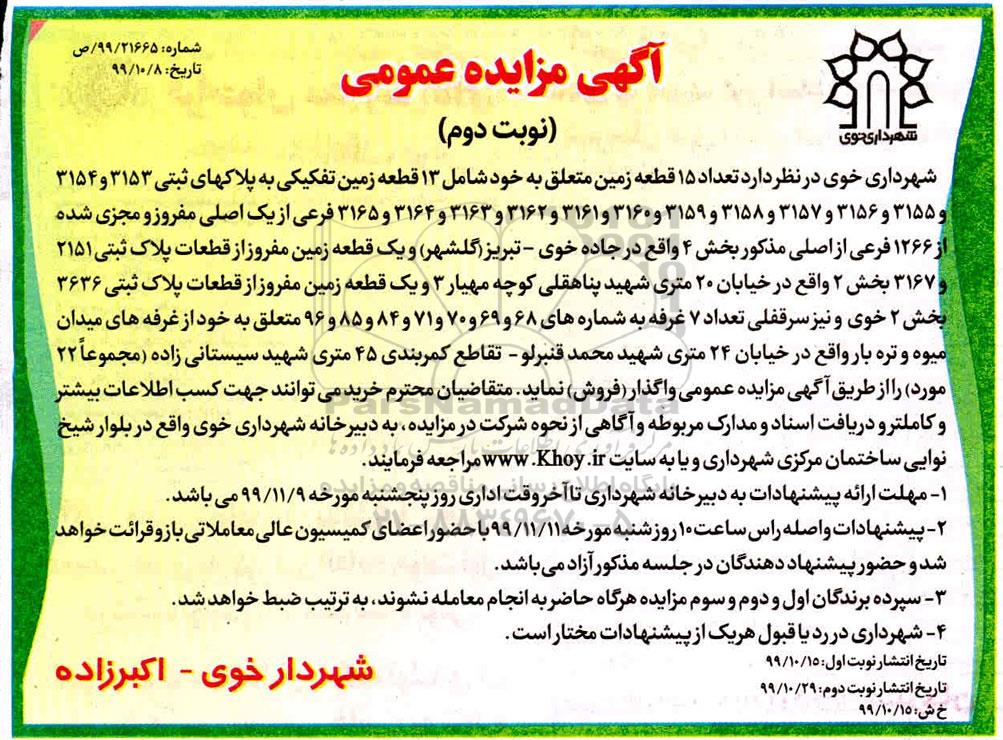 شماره: ۹۹/۲۱۶۶۵/ص
تاریخ: ۹۹/۱۰/۸
آگهی مزایده عمومی
(نوبت دوم)
شهرداری خوی
شهرداری خوی در نظر دارد تعداد ۱۵ قطعه زمین متعلق به خود شامل ۱۳ قطعه زمین تفکیکی به پلاکهای ثبتی ۳۱۵۳ و ۳۱۵۴
و ۳۱۵۵ و ۳۱۵۶ و ۳۱۵۷ و ۳۱۵۸ و ۳۱۵۹ و ۳۱۶۰ و ۳۱۶۱ و ۳۱۶۲ و ۳۱۶۳ و ۳۱۶۴ و ۳۱۶۵ فرعی از یک اصلی مفروز و مجزی شده
از ۱۲۶۶ فرعی از اصلی مذکور بخش ۴ واقع در جاده خوی - تبریز (گلشهر) و یک قطعه زمین مفروز از قطعات پلاک ثبتی ۲۱۵۱
و ۳۱۶۷ بخش ۲ واقع در خیابان ۲۰ متری شهید پناهقلی کوچه مهیار ۳ و یک قطعه زمین مفروز از قطعات پلاک ثبتی ۳۶۳۶
بخش ۲ خوی و نیز سرقفلی تعداد ۷ غرفه به شماره های ۶۸ و ۶۹ و ۷۰ و ۷۱ و ۸۴ و ۸۵ و ۹۶ متعلق به خود از غرفه های میدان
میوه و تره بار واقع در خیابان ۲۴ متری شهید محمد قنبرلو - تقاطع کمربندی ۴۵ متری شهید سیستانی زاده (مجموعاً ۲۲
مورد) را از طریق آگهی مزایده عمومی واگذار (فروش) نماید. متقاضیان محترم خرید می توانند جهت کسب اطلاعات بیشتر
و کاملتر و دریافت اسناد و مدارک مربوطه و آگاهی از نحوه شرکت در مزایده، به دبیرخانه شهرداری خوی واقع در بلوار شیخ
نوایی ساختمان مرکزی شهرداری و یا به سایت www.Khoy.ir مراجعه فرمایند.
۱- مهلت ارائه پیشنهادات به دبیرخانه شهرداری تا آخر وقت اداری روز پنجشنبه مورخه ۹۹/۱۱/۹ می باشد.
۲- پیشنهادات واصله راس ساعت ۱۰ روز شنبه مورخه ۹۹/۱۱/۱۱ با حضور اعضای کمیسیون عالی معاملاتی باز و قرائت خواهد
شد و حضور پیشنهاد دهندگان در جلسه مذکور آزاد می باشد.
۳- سپرده برندگان اول و دوم و سوم مزایده هرگاه حاضر به انجام معامله نشوند، به ترتیب ضبط خواهد شد.
۴- شهرداری در رد یا قبول هریک از پیشنهادات مختار است.
تاریخ انتشار نوبت اول: ۹۹/۱۰/۱۵
تاریخ انتشار نوبت دوم: ۹۹/۱۰/۲۹
خ ش: ۹۹/۱۰/۱۵
شهردار خوی - اکبرزاده
ParsNamadData
پایگاه اطلاع رسانی مناقصه و مزایده